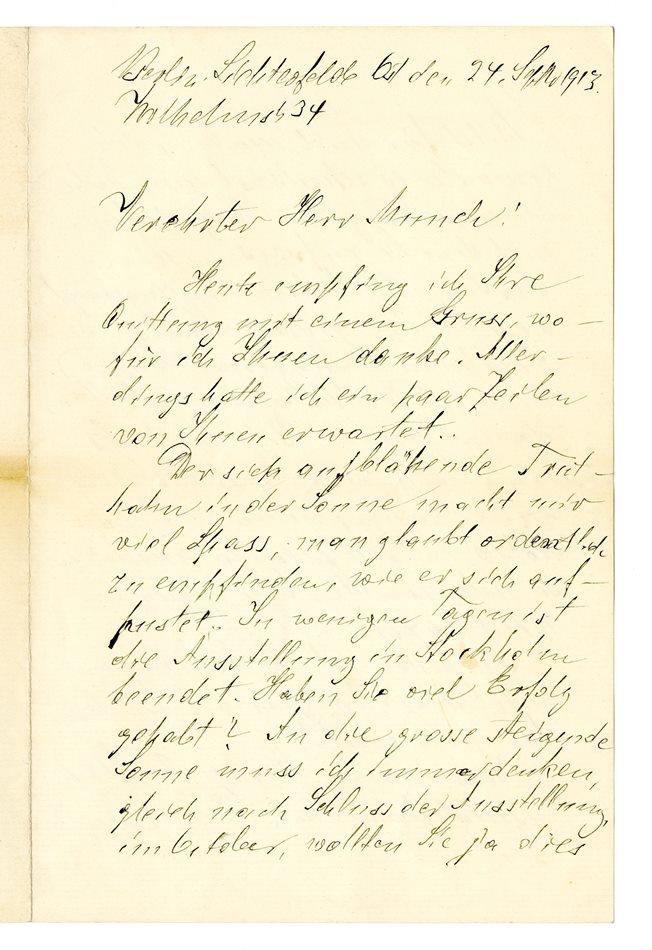 Berlin-Lichterfelde Ost den 24. Sept. 1913.
Wilhelmstr 34
Verehrter Herr Munch!
Heute empfing ich Ihre
Quittung mit einem Gruss, wo-
für ich Ihnen danke. Aller-
dings hatte ich ein paar Zeilen
von Ihnen erwartet..
Der sich aufblähende Trut-
hahn in der Sonne macht mir
viel Spass, man glaubt ordentlich
zu empfinden, wie er sich auf-
pustet. In wenigen Tagen ist
die Ausstellung in Stockholm
beendet. Haben Sie viel Erfolg
gehabt? An die grosse steigende
Sonne muss ich immer denken,
gleich nach Schluss der Ausstellung,
im October, wollten Sie ja dies